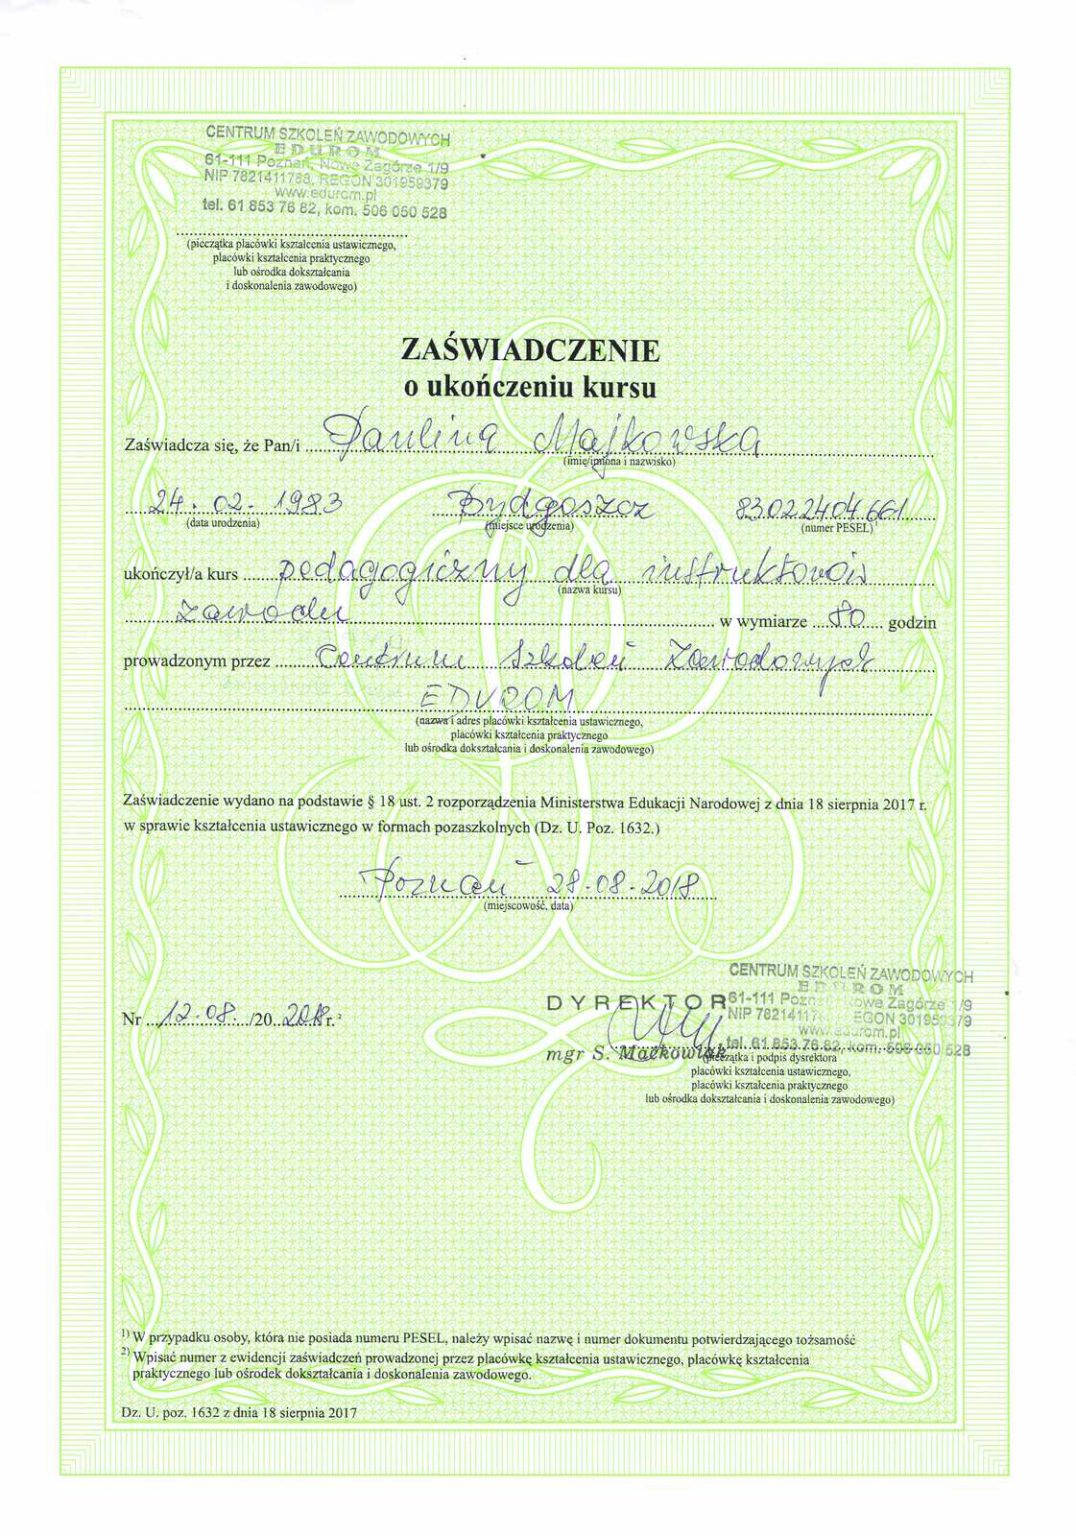 CENTRUM SZKOLEŃ ZAWODOWYCH
EDUROM
61-111 Poznań, Nowe Zagórze 1/9
NIP 7821411788, REGON 301959379
www.edurom.pl
tel. 61 853 76 82, kom. 506 050 528
(pieczątka placówki kształcenia ustawicznego,
placówki kształcenia praktycznego
lub ośrodka dokształcania
i doskonalenia zawodowego)
ZAŚWIADCZENIE
o ukończeniu kursu
Zaświadcza się, że Pan/i Paulina Majkowska
(imię/imiona i nazwisko)
24. 02. 1983 Bydgoszcz 83022404661
(data urodzenia) (miejsce urodzenia) (numer PESEL)¹
ukończył/a kurs pedagogiczny dla instruktorów
(nazwa kursu)
zawodu w wymiarze 80 godzin
prowadzonym przez Centrum Szkoleń Zawodowych
EDUROM
(nazwa i adres placówki kształcenia ustawicznego,
placówki kształcenia praktycznego
lub ośrodka dokształcania i doskonalenia zawodowego)
Zaświadczenie wydano na podstawie § 18 ust. 2 rozporządzenia Ministerstwa Edukacji Narodowej z dnia 18 sierpnia 2017 r.
w sprawie kształcenia ustawicznego w formach pozaszkolnych (Dz. U. Poz. 1632.)
Poznań 28-08-2018
(miejscowość, data)
CENTRUM SZKOLEŃ ZAWODOWYCH
EDUROM
DYREKTOR 61-111 Nowe Zagórze 1/9
Nr 12.08. /20 2018 r.²
www.edurom.pl
mgr S. Maćkowiak tel. 61 853 76 82, kom. 506 050 528
(pieczątka i podpis dysrektora
placówki kształcenia ustawicznego,
placówki kształcenia praktycznego
lub ośrodka dokształcania i doskonalenia zawodowego)
¹⁾ W przypadku osoby, która nie posiada numeru PESEL, należy wpisać nazwę i numer dokumentu potwierdzającego tożsamość
²⁾ Wpisać numer z ewidencji zaświadczeń prowadzonej przez placówkę kształcenia ustawicznego, placówkę kształcenia
praktycznego lub ośrodek dokształcania i doskonalenia zawodowego.
Dz. U. poz. 1632 z dnia 18 sierpnia 2017